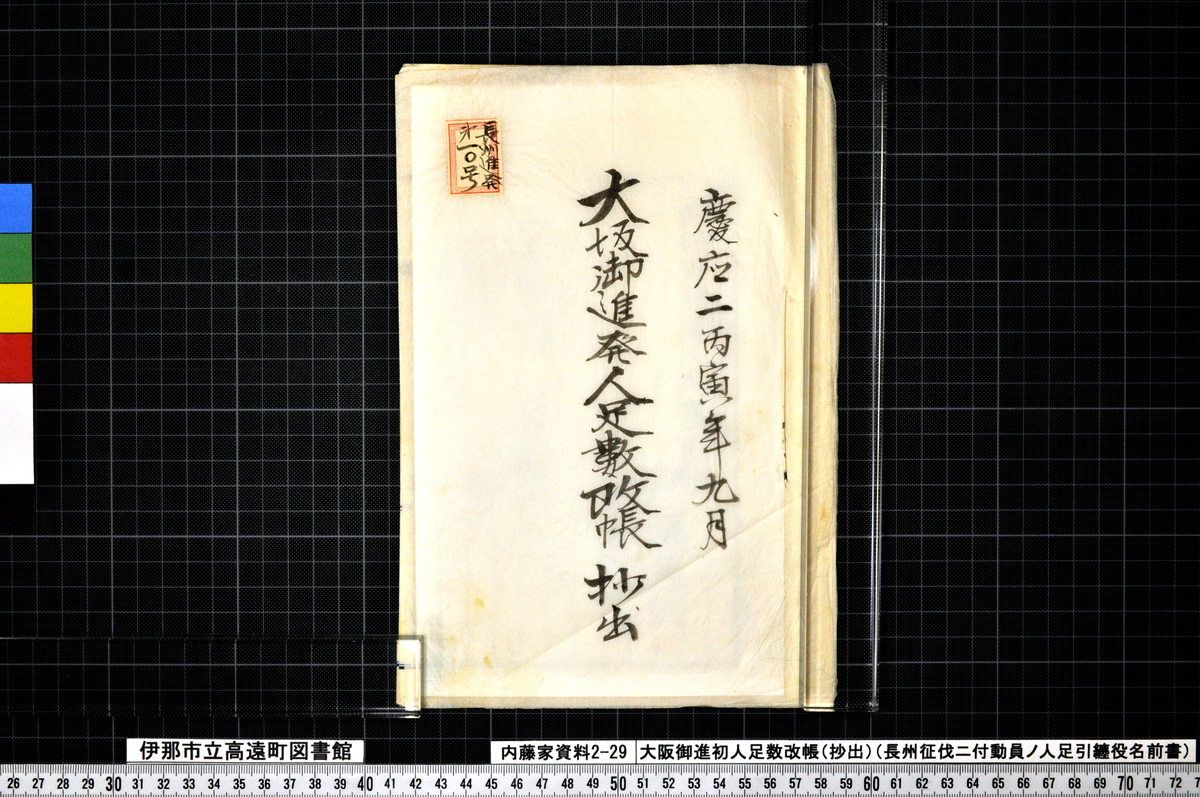 慶応二丙寅年九月
大坂御進発人足数改帳 抄出
長州進発
才一〇号
伊那市立高遠町図書館
内藤家資料2-29
大阪御進初人足数改帳(抄出)(長州征伐ニ付動員ノ人足引纏役名前書)
26 27 28 29 30 31 32 33 34 35 36 37 38 39 40 41 42 43 44 45 46 47 48 49 50 51 52 53 54 55 56 57 58 59 60 61 62 63 64 65 66 67 68 69 70 71 72